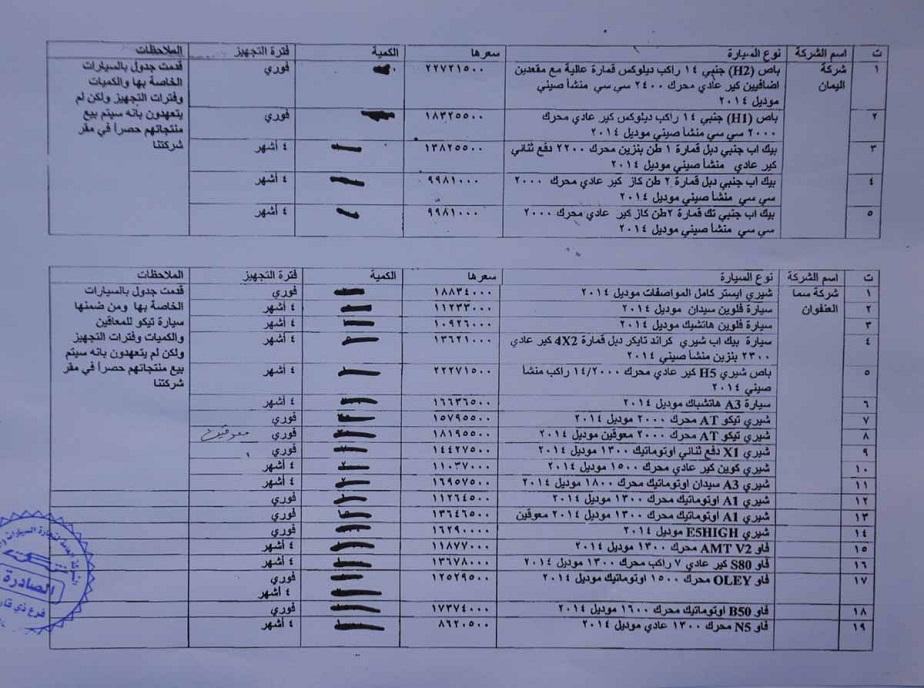 ت اسم الشركة نوع السيارة سعرها الكمية فترة التجهيز الملاحظات
١ شركة اليمان باص (H2) جنبي ١٤ راكب ديلوكس قمارة عالية مع مقعدين ٢٢٧٢١٥٠٠ فوري قدمت جدول بالسيارات
اضافيين كير عادي محرك ٢٤٠٠ سي سي منشأ صيني الخاصة بها والكميات
موديل ٢٠١٤ وفترات التجهيز ولكن لم
٢ باص (H1) جنبي ١٤ راكب ديلوكس كير عادي محرك ١٨٣٢٥٥٠٠ فوري يتعهدون بانه سيتم بيع
٢٠٠٠ سي سي منشأ صيني موديل ٢٠١٤ منتجاتهم حصراً في مقر
٣ بيك اب جنبي دبل قمارة ١ طن بنزين محرك ٢٢٠٠ دفع ثنائي ١٣٨٢٥٥٠٠ ٤ أشهر شركتنا
كير عادي منشأ صيني موديل ٢٠١٤
٤ بيك اب جنبي دبل قمارة ٢ طن كاز كير عادي محرك ٢٠٠٠ ٩٩٨١٠٠٠ ٤ أشهر
سي سي منشأ صيني موديل ٢٠١٤
٥ بيك اب جنبي تك قمارة ٢طن كاز كير عادي محرك ٢٠٠٠ ٩٩٨١٠٠٠ ٤ أشهر
سي سي منشأ صيني موديل ٢٠١٤
ت اسم الشركة نوع السيارة سعرها الكمية فترة التجهيز الملاحظات
١ شركة سما شيري ايستر كامل المواصفات موديل ٢٠١٤ ١٨٨٣٤٠٠٠ فوري قدمت جدول بالسيارات
٢ العنفوان سيارة فلوين سيدان موديل ٢٠١٤ ١١٢٣٣٠٠٠ ٤ أشهر الخاصة بها ومن ضمنها
٣ سيارة فلوين هاتشبك موديل ٢٠١٤ ١٠٩٢٦٠٠٠ ٤ أشهر سيارة تيكو للمعاقين
٤ سيارة بيك اب شيري كراند تايكر دبل قمارة 4X2 كير عادي ١٣٦٢١٠٠٠ ٤ أشهر والكميات وفترات التجهيز
٢٣٠٠ بنزين منشأ صيني ٢٠١٤ ولكن لم يتعهدون بانه سيتم
٥ باص شيري H5 كير عادي محرك ١٤/٢٠٠٠ راكب منشأ ٢٢٢٧١٥٠٠ ٤ أشهر بيع منتجاتهم حصراً في مقر
صيني ٢٠١٤ شركتنا
٦ سيارة A3 هاتشباك موديل ٢٠١٤ ١٦٦٣٦٥٠٠ ٤ أشهر
٧ شيري تيكو AT محرك ٢٠٠٠ موديل ٢٠١٤ ١٥٧٩٥٥٠٠ فوري
٨ شيري تيكو AT محرك ٢٠٠٠ معوقين موديل ٢٠١٤ ١٨١٩٥٥٠٠ فوري معوقين
٩ شيري X1 دفع ثنائي اوتوماتيك ١٣٠٠ موديل ٢٠١٤ ١٤٤٢٧٥٠٠ فوري
١٠ شيري كوين كير عادي محرك ١٥٠٠ موديل ٢٠١٤ ١١٠٣٧٠٠٠ ٤ أشهر
١١ شيري A3 سيدان اوتوماتيك محرك ١٨٠٠ موديل ٢٠١٤ ١٦٩٥٧٥٠٠ ٤ أشهر
١٢ شيري A1 اوتوماتيك محرك ١٣٠٠ موديل ٢٠١٤ ١١٢٦٤٥٠٠ فوري
١٣ شيري A1 اوتوماتيك محرك ١٣٠٠ موديل ٢٠١٤ معوقين ١٣٦٤٦٥٠٠ فوري
١٤ شيري E5HIGH موديل ٢٠١٤ ١٦٢٩٠٠٠٠ فوري
١٥ فاو AMT V2 محرك ١٣٠٠ موديل ٢٠١٤ ١١٨٧٧٠٠٠ ٤ أشهر
١٦ فاو S80 كير عادي ٧ راكب محرك ١٣٠٠ موديل ٢٠١٤ ١٣٦٧٨٠٠٠ ٤ أشهر
١٧ فاو OLEY محرك ١٥٠٠ اوتوماتيك موديل ٢٠١٤ ١٢٥٢٩٥٠٠ فوري
٤ أشهر
١٨ فاو B50 اوتوماتيك محرك ١٦٠٠ موديل ٢٠١٤ ١٧٣٧٤٠٠٠ فوري
١٩ فاو N5 محرك ١٣٠٠ عادي موديل ٢٠١٤ ٨٦٢٠٥٠٠ ٤ أشهر
الصادرة
فرع ذي قار